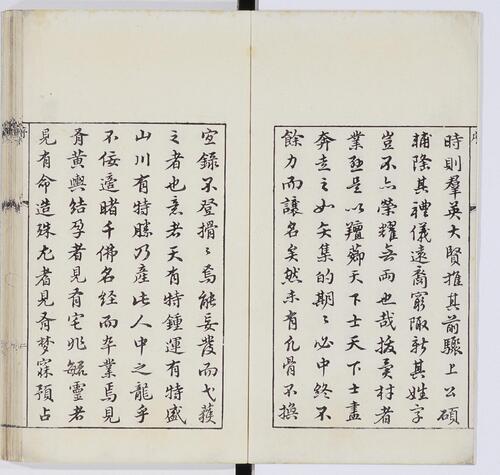 時則羣英大賢推其前驟上公碩
輔降其禮儀遠裔窮陬新其姓字
豈不亦榮耀無兩也哉援異材者
業是以羶薌天下士天下士盡
奔走之如矢集的期〻必中終不
餘力而讓名矣然未有凡骨不換
空錄不登搰〻焉能妄發而弋蒦
之者也意者天有特鍾運有特盛
山川有特勝乃產此人中之龍乎
不佞遍睹千佛名經而卒業焉見
有黃輿結孕者見有宅兆毓靈者
見有命造殊尤者見有夢寐預占